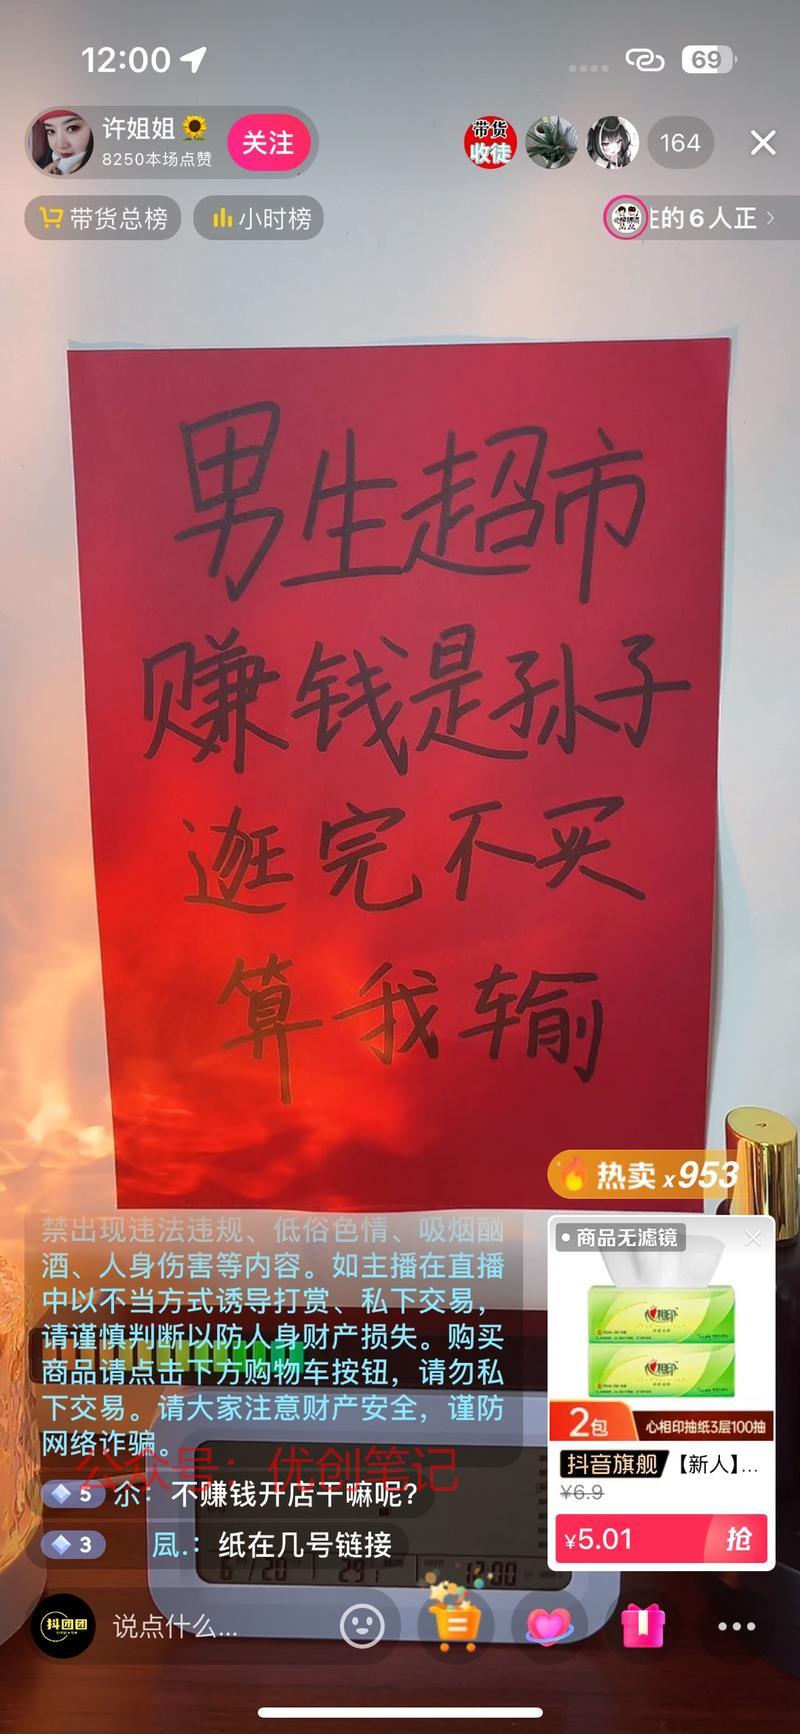 12:00
69
许姐姐🌻
8250本场点赞
关注
带货
收徒
164
带货总榜
小时榜
的6人正
男生超市
赚钱是孙子
逛完不买
算我输
热卖 x953
禁出现违法违规、低俗色情、吸烟酗
酒、人身伤害等内容。如主播在直播
中以不当方式诱导打赏、私下交易，
请谨慎判断以防人身财产损失。购买
商品请点击下方购物车按钮，请勿私
下交易。请大家注意财产安全，谨防
网络诈骗。
公众号：优创笔记
5 尒：不赚钱开店干嘛呢？
3 凨.：纸在几号链接
商品无滤镜
心相印
心相印
2包
心相印抽纸3层100抽
抖音旗舰
【新人】...
¥6.9
¥5.01
抢
12:00
抖团团
说点什么...